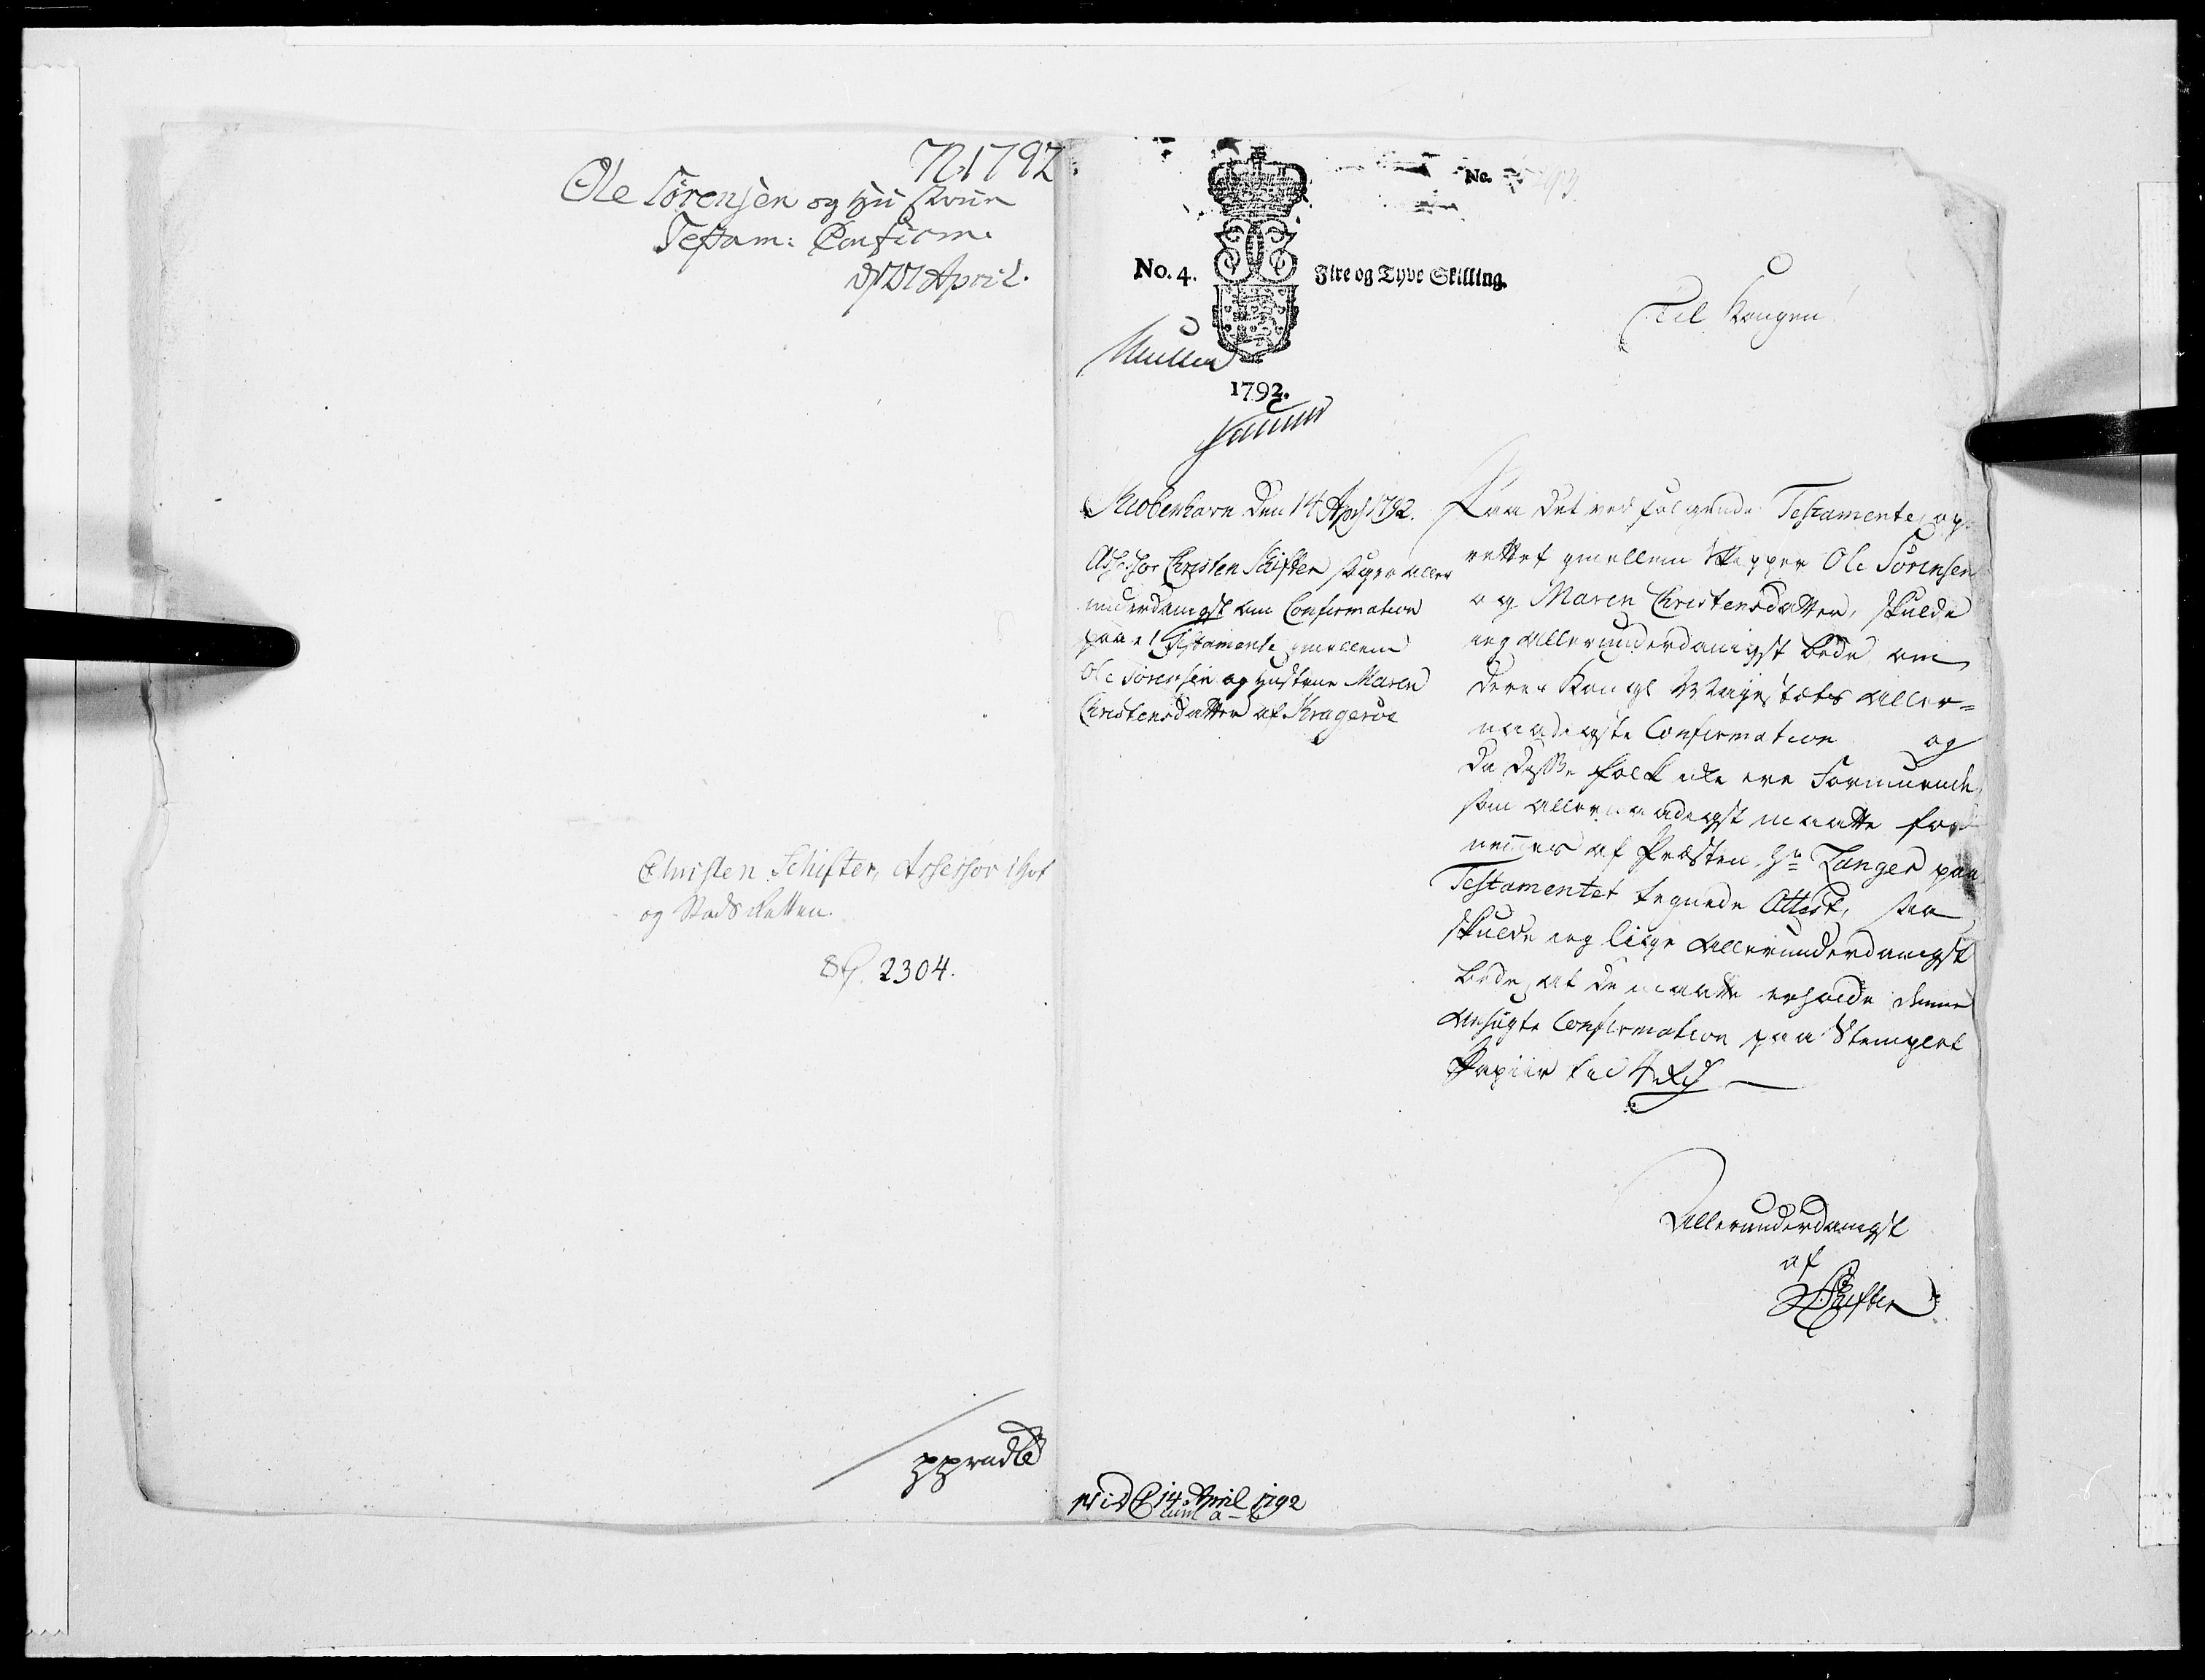 N 1792
Ole Sørensen og Hustrue
Testam: Confirm.
d 27 April.
Christen Schifter, Assessor i Hof
og Stads Retten.
2304.
No.
No. 4. Fire og Tyve Skilling.
Til Kongen!
Müller
1792.
Kiøbenhavn den 14 April 1792.
Assessor Christen Schifter søger aller
underdanigst om Confirmation
paa et Testamente imellem
Ole Sørensen og Hustrue Maren
Christensdatter af Kragerøe
Paa det ved følgende Testamente, op-
rettet imellem Skipper Ole Sørensen
og Maren Christensdatter, skulde
jeg allerunderdanigst bede om
Deres Kongl Majestæts aller-
naadigste Confirmation og
da disse Folk ikke ere Formuende,
som allernaadigst maatte for
nemmes af Præsten Hr Langes paa
Testamentet tegnede Attest, saa
skulde jeg lige allerunderdanigst
bede, at de maatte erholde denne
ansøgte Confirmation paa Stemplet
Papiir til 4 Rd
Allerunderdanigst
af
Schifter
14 April 1792